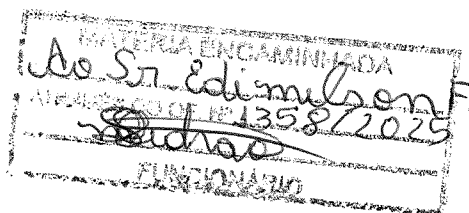 MATÉRIA ENCAMINHADA
Ao Sr. Edimilson F
OF Nº 1358/2025
FUNCIONÁRIO